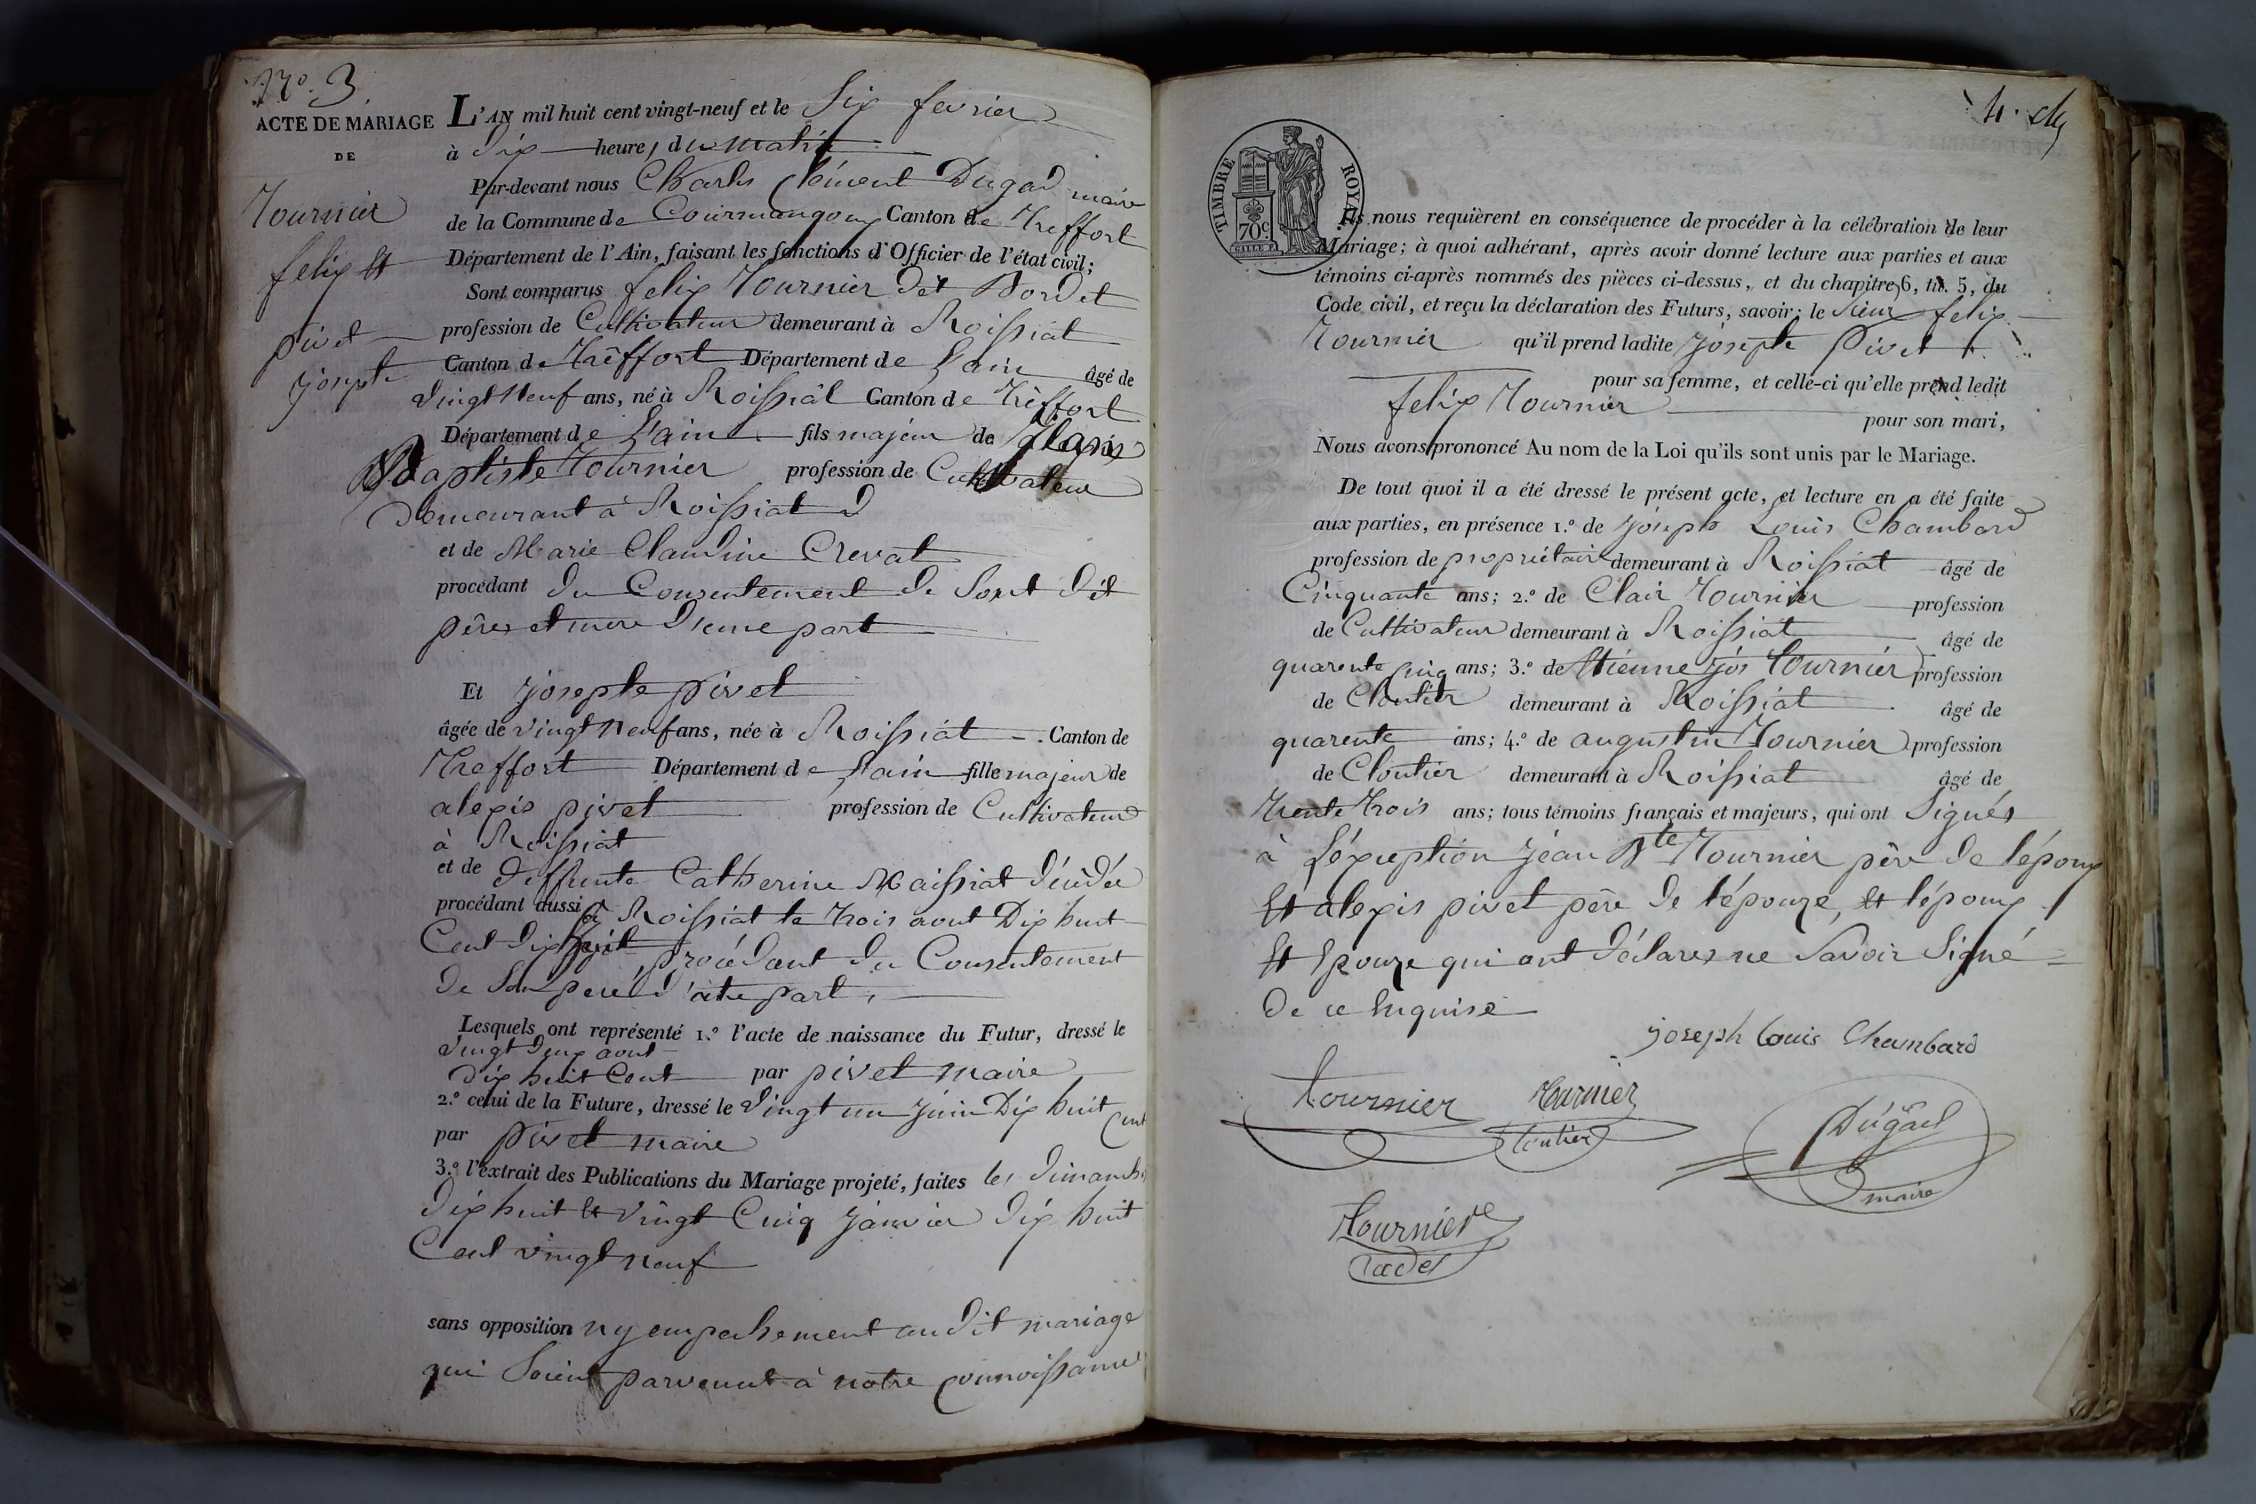 N.º 3
ACTE DE MARIAGE
DE
Tournier
felix Et
pivet
josephe
L'AN mil huit cent vingt-neuf et le Six fevrier
à Dix heures du matin
Par-devant nous Charles Clément Dugad maire
de la Commune de Courmangoux Canton de Treffort
Département de l'Ain, faisant les fonctions d'Officier de l'état civil;
Sont comparus felix Tournier dit Bordet
profession de Cultivateur demeurant à Roissiat
Canton de Trêffort Département de L'ain âgé de
vingt Neuf ans, né à Roissiat Canton de Trêffort
Département de L'ain fils majeur de
Baptiste Tournier profession de Cultivateur
Demeurant à Roissiat
et de Marie Claudine Crevat
procédant du Consentement de Sont dit
pêre et mere d'eune part
Et josephe pivet
âgée de vingt Neuf ans, née à Roissiat Canton de
Treffort Département de L'ain fille majeur de
alexis pivet profession de Cultivateur
à Roissiat
et de deffunte Catherine Maissiat décédée
procédant aussi à Roissiat le trois aout Dix huit
Cent dix procédant du Consentement
de Son pere d'autre part,
Lesquels ont représenté 1.º l'acte de naissance du Futur, dressé le
vingt deux aout
dix huit Cent par pivet maire
2.º celui de la Future, dressé le vingt un juin Dix huit Cent
par pivet maire
3.º l'extrait des Publications du Mariage projeté, faites les dimanche
dix huit Et vingt Cinq janvier dix huit
Cent vingt neuf
sans opposition ny empechement au dit mariage
qui Soient parvenut à notre connoissance
TIMBRE ROYAL
70c
Ils nous requièrent en conséquence de procéder à la célébration de leur
Mariage; à quoi adhérant, après avoir donné lecture aux parties et aux
témoins ci-après nommés des pièces ci-dessus, et du chapitre 6, tit. 5, du
Code civil, et reçu la déclaration des Futurs, savoir: le Sieur felix
Tournier qu'il prend ladite josephe Pivet
pour sa femme, et celle-ci qu'elle prend ledit
felix Tournier
pour son mari,
Nous avons prononcé Au nom de la Loi qu'ils sont unis par le Mariage.
De tout quoi il a été dressé le présent acte, et lecture en a été faite
aux parties, en présence 1.º de joseph Louis Chambard
profession de propriétaire demeurant à Roissiat âgé de
Cinquante ans; 2.º de Clair Tournier profession
de Cultivateur demeurant à Roissiat âgé de
quarente cinq ans; 3.º de Etienne jos Tournier profession
de Cloutier demeurant à Roissiat âgé de
quarente ans; 4.º de augustin Tournier profession
de Cloutier demeurant à Roissiat âgé de
Trente trois ans; tous témoins français et majeurs, qui ont Signés
à L'éxception jéan Bte Tournier père de l'époux
Et alexis pivet père de l'épouze, Et l'époux
Et Epouze qui ont déclarer ne Savoir Signé
De ce Enquise
joseph louis Chambard
tournier
tournier
cloutier
Dugad
maire
Tournier
cadet